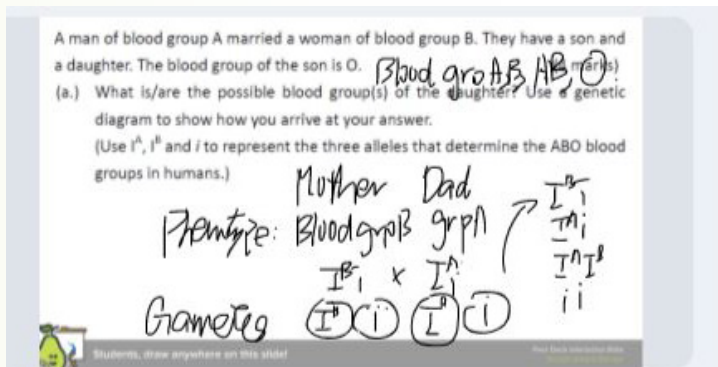 A man of blood group A married a woman of blood group B. They have a son and
a daughter. The blood group of the son is O. Blood gro AB, AB, O! marks)
(a.) What is/are the possible blood group(s) of the daughter? Use a genetic
diagram to show how you arrive at your answer.
(Use Iᴬ, Iᴮ and i to represent the three alleles that determine the ABO blood
groups in humans.)
Mother Dad
Phenotype: Blood grpB grpA
Iᴮi x Iᴬi
Gametes Iᴮ i Iᴬ i
Iᴮi
Iᴬi
IᴬIᴮ
ii
Students, draw anywhere on this slide!